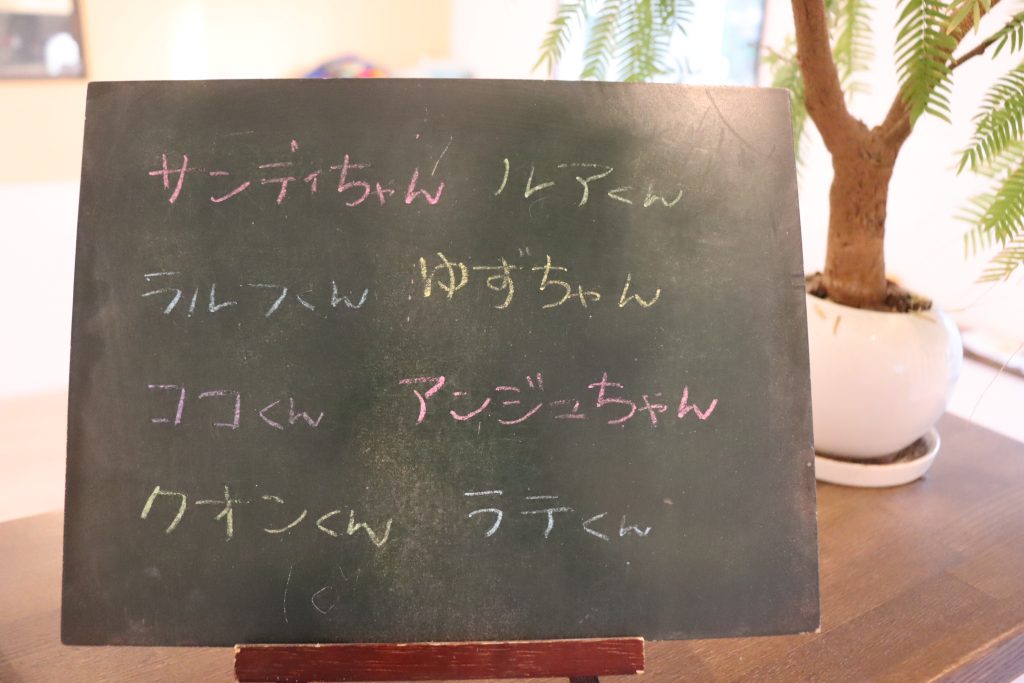 サンディちゃん ルアくん
ラルフくん ゆずちゃん
ココくん アンジュちゃん
クオンくん ラテくん